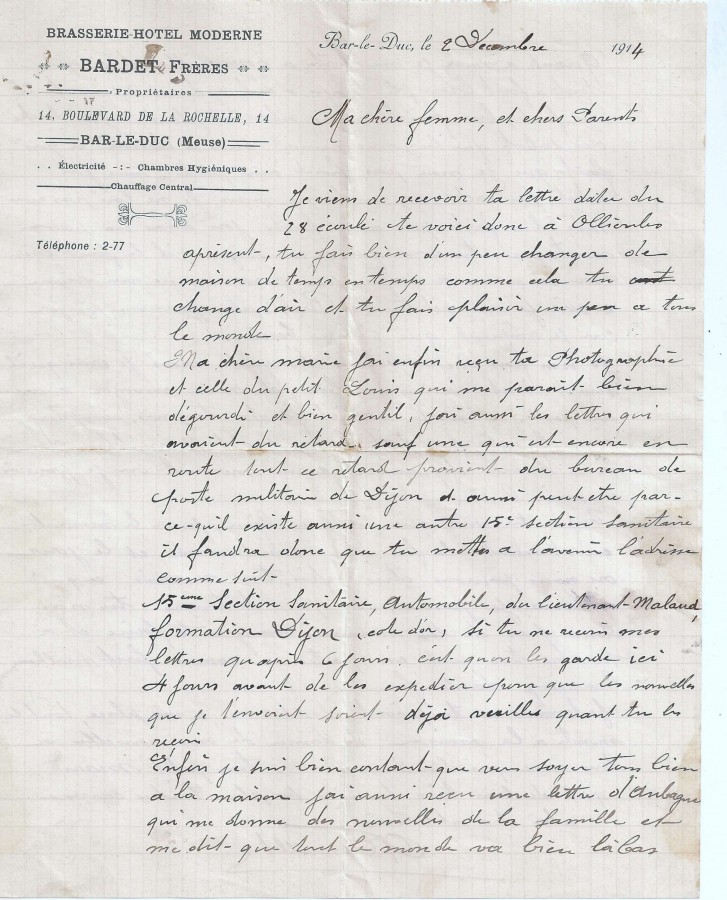 BRASSERIE-HOTEL MODERNE
BARDET FRÈRES
Propriétaires
14, BOULEVARD DE LA ROCHELLE, 14
BAR-LE-DUC (Meuse)
. . Électricité -:- Chambres Hygiéniques . .
Chauffage Central
Téléphone : 2-77
Bar-le-Duc, le 2 Décembre 1914
Ma chère femme, et chers Parents
Je viens de recevoir ta lettre datée du
28 écoulé te voici donc à Ollioules
aprésent, tu fais bien d'un peu changer de
maison de temps en temps comme cela tu
change d'air et tu fais plaisir un peu a tous
le monde
Ma chère marie j'ai enfin reçu ta Photographie
et celle du petit Louis qui me parait bien
dégourdi et bien gentil, j'ai aussi les lettres qui
avaient du retard, sauf une qui est encore en
route tout ce retard provient du bureau de
poste militaire de Dijon et aussi peut etre par-
ce-qu'il existe aussi une autre 15e section sanitaire
il faudra donc que tu mettes a l'avenir l'adresse
comme suit
15eme Section Sanitaire, Automobile, du lieutenant Malaud,
formation Dijon, cote d'or, si tu ne recois mes
lettres qu'après 6 jours. c'est qu'on les garde ici
4 jours avant de les expedier pour que les nouvelles
que je t'envoient soient déja vieilles quant tu les
recois
Enfin je suis bien contant que vous soyez tous bien
a la maison j'ai aussi reçu une lettre d'Aubagne
qui me donne des nouvelles de la famille et
me dit que tout le monde va bien làbas